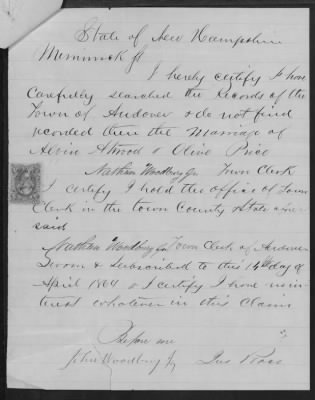 State of New Hampshire
Merrimack ss
I hereby certify I have
Carefully searched the Records of the
Town of Andover & do not find
recorded there the Marriage of
Alvin Atwood & Olive Price
Nathan Woodbury Jr Town Clerk
I certify I hold the office of Town
Clerk in the town County & State afore
said
Nathan Woodbury Jr Town Clerk of Andover
Sworn & Subscribed to this 14th day of
April 1864 & I certify I have no in
terest whatever in this Claim
Before me
Woodbury Jr